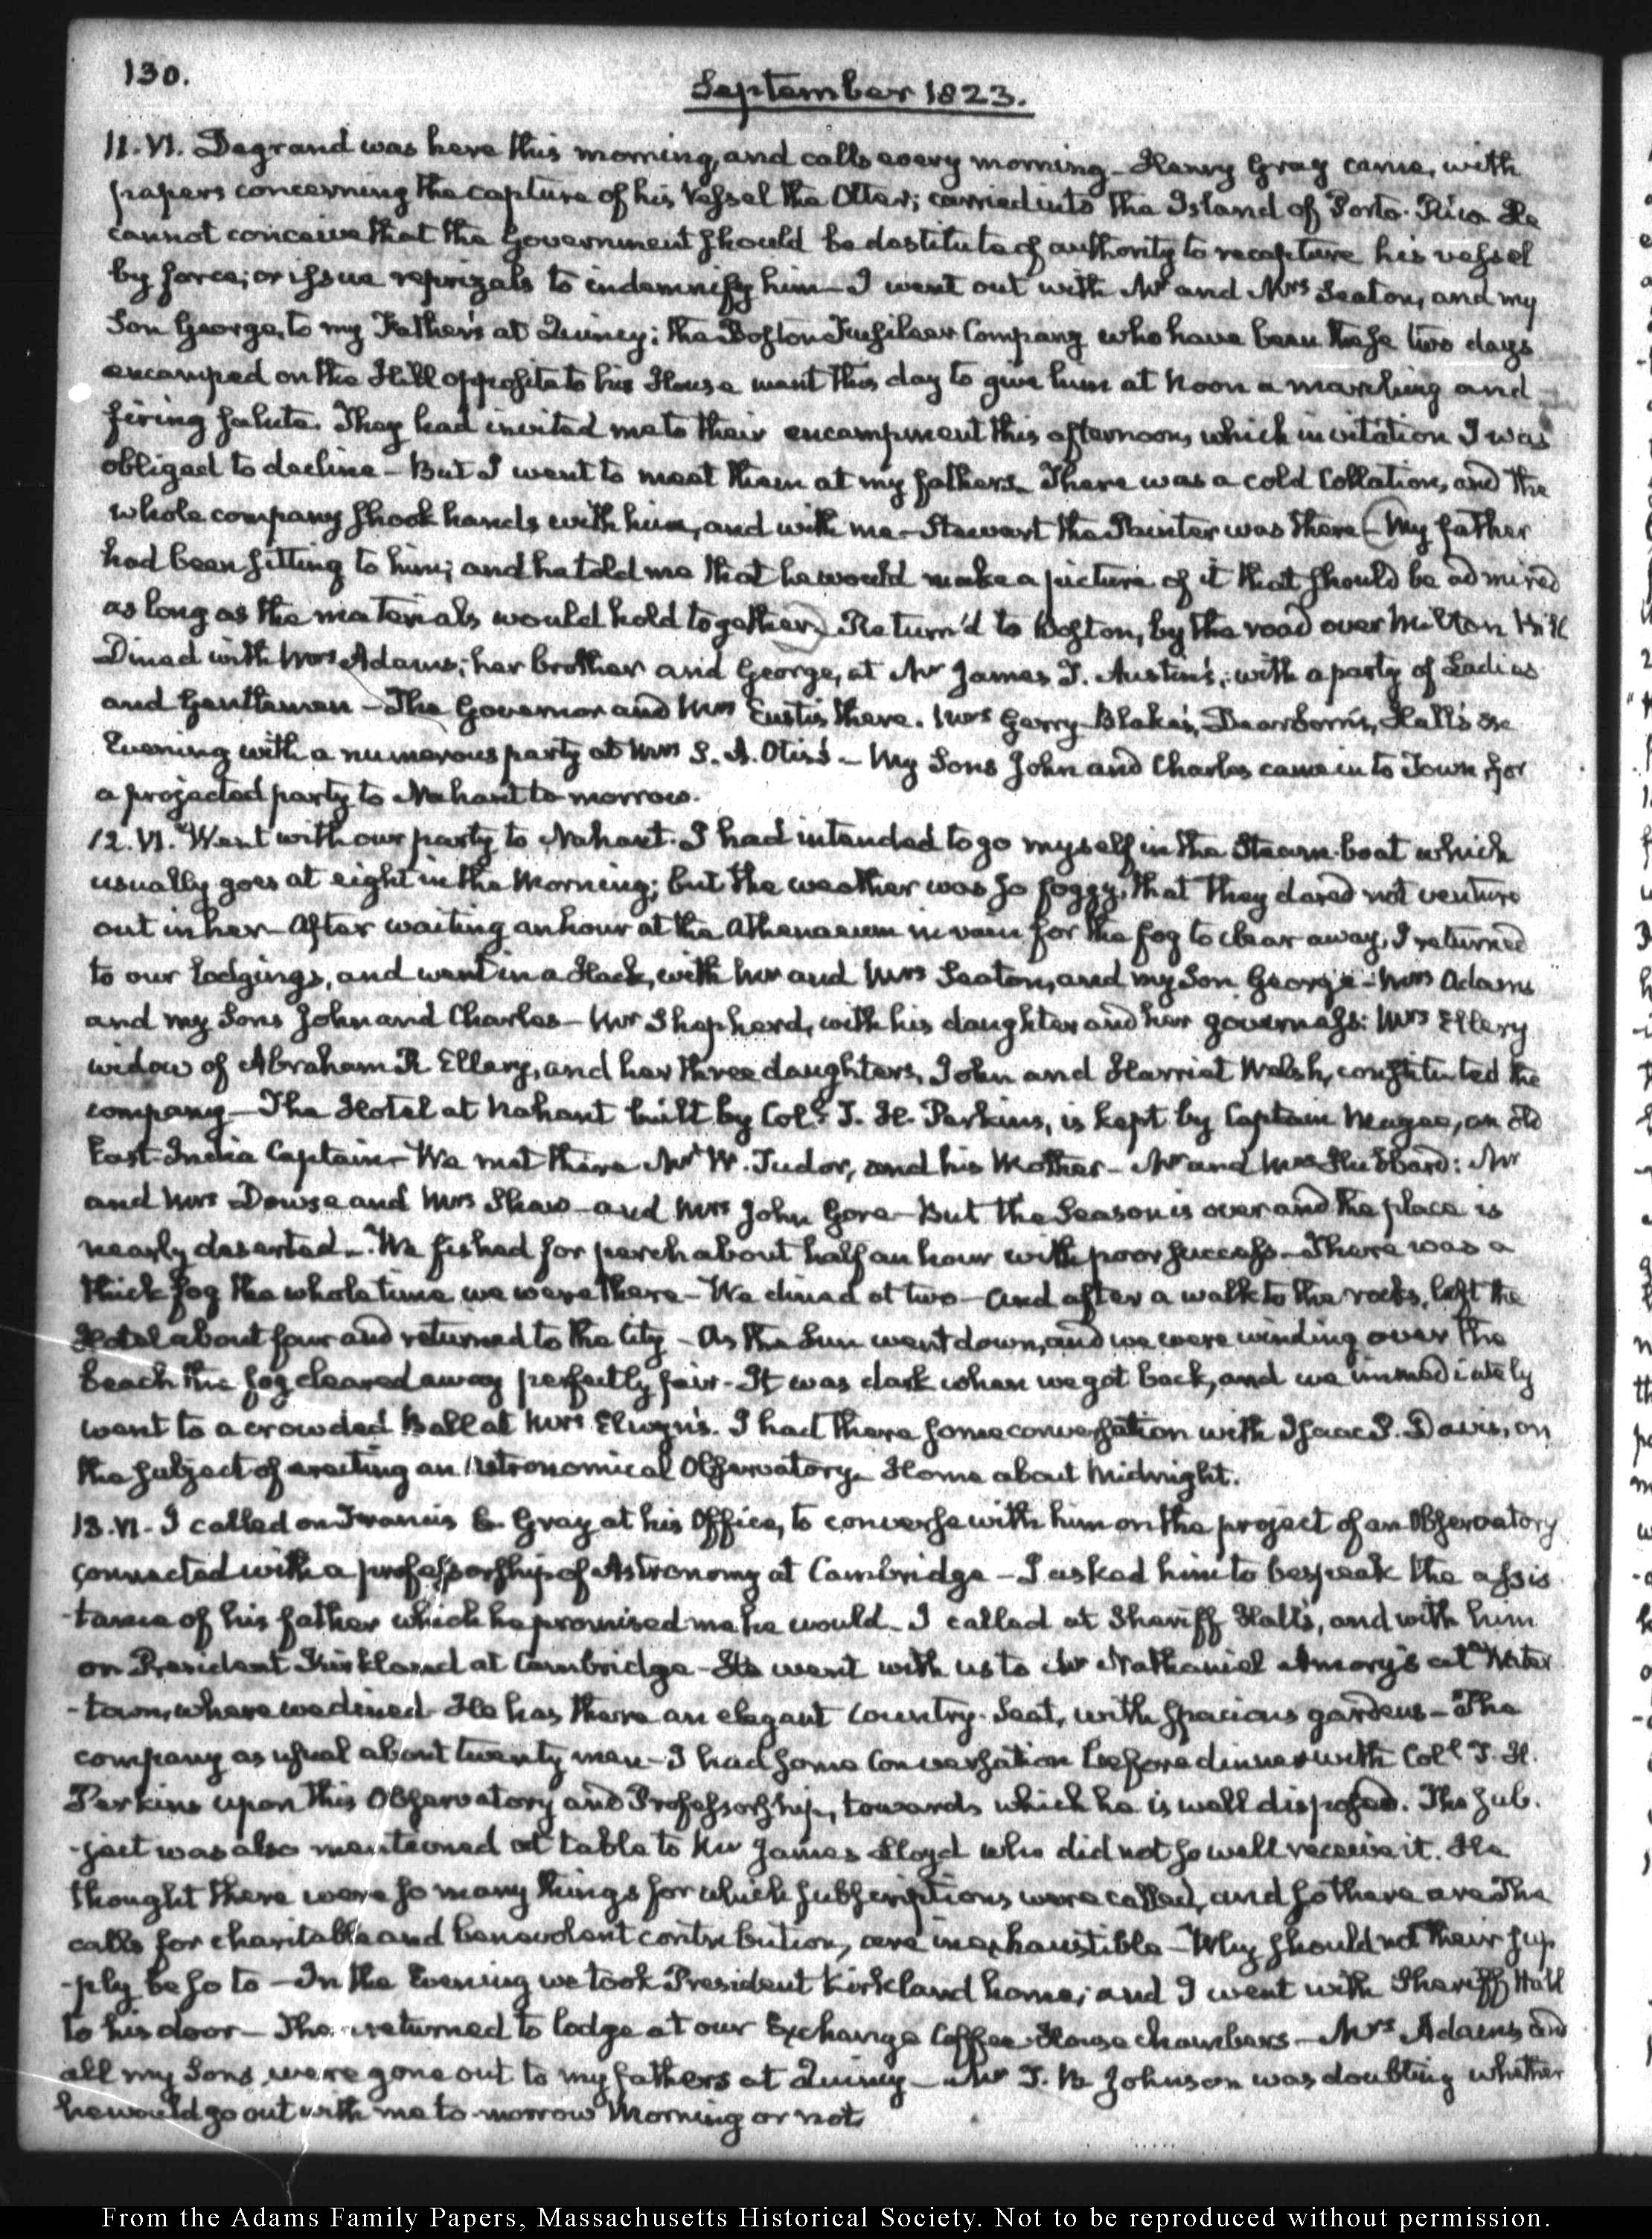 130.
September 1823.
11. VI. Degrand was here this morning, and calls every morning - Henry Gray came, with
papers concerning the capture of his Vessel the Otter; carried into the Island of Porto-Rico. He
cannot conceive that the Government should be destitute of authority to recapture his vessel
by force; or issue reprizals to indemnify him - I went out with Mr and Mrs Seaton, and my
Son George, to my Father's at Quincy; the Boston Fusileer Company who have been these two days
encamped on the Hill opposite to his House went this day to give him at Noon a marching and
firing salute. They had invited me to their encampment this afternoon, which invitation I was
obliged to decline - But I went to meet them at my father's. There was a cold Collation, and the
whole company shook hands with him, and with me - Stewart the Painter was there - My father
had been sitting to him; and he told me that he would make a picture of it that should be admired
as long as the materials would hold together. Return'd to Boston, by the road over Milton Hill
Dined with Mrs Adams; her brother and George, at Mr James T. Austin's; with a party of Ladies
and Gentlemen - The Governor and Mrs Eustis there. Mrs Gerry - Blake's, Dearborn's, Hall's &c
Evening with a numerous party at Mrs S. A. Otis's - My Sons John and Charles came in to Town, for
a projected party to Nahant to-morrow.
12. VI. Went with our party to Nahant. I had intended to go myself in the Steam-boat which
usually goes at eight in the Morning; but the weather was so foggy, that they dared not venture
out in her - After waiting an hour at the Athenaeum in vain for the fog to clear away, I returned
to our lodgings, and went in a Hack, with Mr and Mrs Seaton, and my Son George - Mrs Adams
and my Sons John and Charles - Mr Shepherd, with his daughter and her governess: Mrs Ellery
widow of Abraham R Ellery, and her three daughters, John and Harriet Welsh, constituted the
company - The Hotel at Nahant built by Coll. T. H. Perkins, is kept by Captain Magee, an old
East-India Captain - We met there Mr W. Tudor, and his Mother - Mr and Mrs Hubbard: Mr
and Mrs Dowse and Mrs Shaw - and Mrs John Gore - But the Season is over and the place is
nearly deserted - We fished for perch about half an hour with poor success - There was a
thick fog the whole time we were there - We dined at two - and after a walk to the rocks, left the
Hotel about four and returned to the City - As the Sun went down, and we were winding over the
beach the fog cleared away perfectly fair - It was dark when we got back, and we immediately
went to a crowded Ball at Mrs Elwyn's. I had there some conversation with Isaac P. Davis, on
the subject of erecting an Astronomical Observatory. Home about Midnight.
13. VI - I called on Francis C. Gray at his Office, to converse with him on the project of an Observatory
connected with a professorship of Astronomy at Cambridge - I asked him to bespeak the assis
-tance of his father which he promised me he would - I called at Sheriff Hall's, and with him
on President Kirkland at Cambridge - He went with us to Mr Nathaniel Amory's at Water
-town, where we dined - He has there an elegant Country-Seat, with spacious gardens - The
company as usual about twenty men - I had some Conversation before dinner with Coll. T. H.
Perkins upon this Observatory and Professorship, towards which he is well disposed. The sub-
-ject was also mentioned at table to Mr James Lloyd who did not so well receive it. He
thought there were so many things for which subscriptions were called, and so there are - The
calls for charitable and benevolent contribution, are inexhaustible - Why should not their sup
-ply be so to - In the Evening we took President Kirkland home; and I went with Sheriff Hall
to his door - Then returned to lodge at our Exchange Coffee-House chambers - Mrs Adams and
all my Sons were gone out to my father's at Quincy - Mr T. B. Johnson was doubting whether
he would go out with me to-morrow Morning or not.
From the Adams Family Papers, Massachusetts Historical Society. Not to be reproduced without permission.